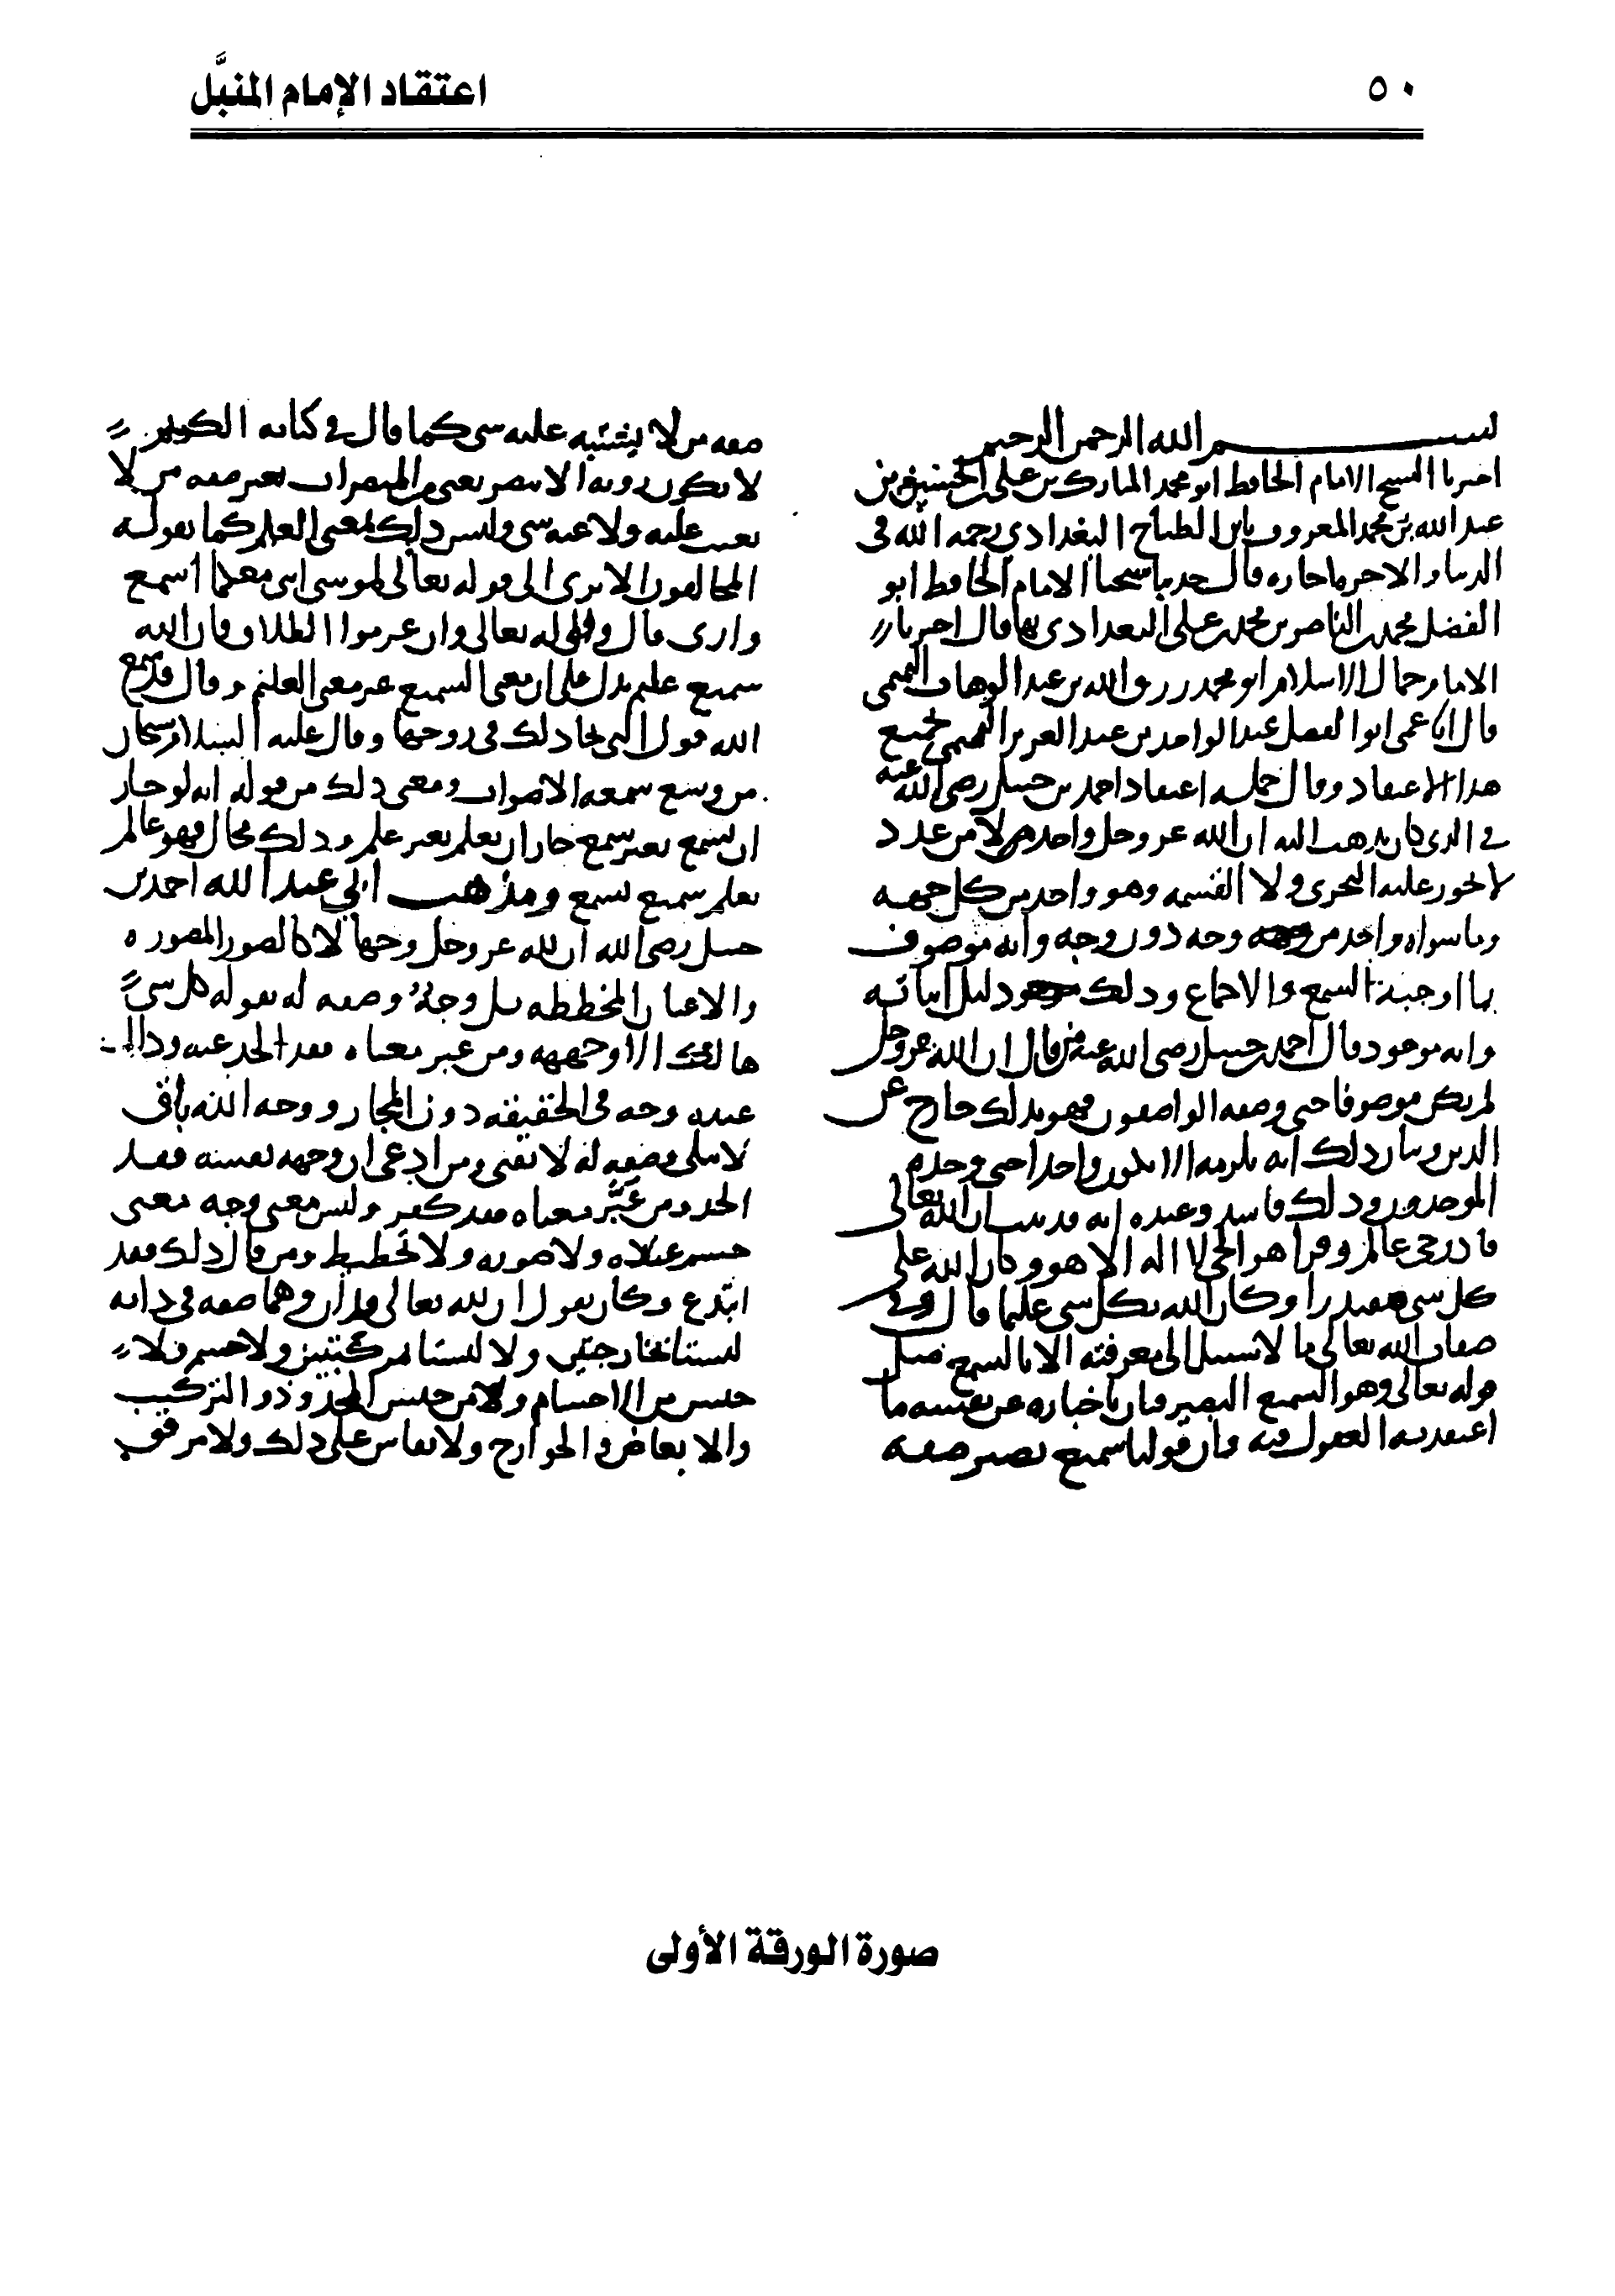 ٥٠
اعتقاد الإمام المنبَّل
بسم الله الرحمن الرحيم
اخبرنا الشيخ الامام الحافظ ابو محمد المبارك بن على بن الحسين بن
عبد الله بن محمد المعروف بابن الطباخ البغدادى رحمه الله فى
الدنيا والاخره اجازه قال حدثنا شيخنا الامام الحافظ ابو
الفضل محمد بن الناصر بن محمد بن على البغدادى بها قال اخبرنا
الامام جمال الاسلام ابو محمد رزق الله بن عبد الوهاب التميمى
قال انا عمى ابو الفضل عبد الواحد بن عبد العزيز التميمى بجميع
هذا الاعتقاد وقال جمله اعتقاد احمد بن حنبل رضى الله عنه
فى الذى كان يذهب اليه ان الله عز وجل واحد لا من عدد
لا يجوز عليه التجزى ولا القسمه وهو واحد من كل جهه
وما سواه واحد من وجه دون وجه وانه موصوف
بما اوجبه السمع والاجماع وذلك دليل اثباته
وانه موجود قال احمد بن حنبل رضى الله عنه من قال ان الله عز وجل
لم يكن موصوفا حتى وصفه الواصفون فهو بذلك خارج عن
الدين وبيان ذلك انه يلزمه الا يكون واحدا حتى وحده
الموحدون وذلك فاسد وعنده انه قد ثبت ان الله تعالى
قادر حى عالم وقرا هو الحى لا اله الا هو وكان الله على
كل شى مقتدرا وكان الله بكل شى عليما قال وفى
صفات الله تعالى ما لا سبيل الى معرفته الا بالسمع مثل
قوله تعالى وهو السميع البصير فبان باخباره عن نفسه ما
اعتقدته العقول فيه وان قولنا سميع بصير صفه
صفه من لا يشتبه عليه شى كما قال فى كتابه الكريم
لا تكون رويه الا ببصر يعنى من المبصرات بغير صفه من لا
يغيب عليه ولا عنه شى وليس ذلك بمعنى العلم كما يقوله
المخالفون الا ترى الى قوله تعالى لموسى اننى معكما اسمع
وارى قال وقوله تعالى وان عزموا الطلاق فان الله
سميع عليم يدل على ان معنى السميع غير معنى العليم وقال قد سمع
الله قول التى تجادلك فى زوجها وقال عليه السلام سبحان
من وسع سمعه الاصوات ومعنى ذلك من قوله انه لو جاز
ان يسمع بغير سمع جاز ان يعلم بغير علم وذلك محال فهو عالم
بعلم سميع بسمع ومذهب ابى عبد الله احمد بن
حنبل رضى الله ان لله عز وجل وجها لا كالصور المصوره
والاعيان المخططه بل وجهه وصفه له بقوله كل شى
هالك الا وجهه ومن غير معناه فقد الحد عنه وذلك
عنده وجه فى الحقيقه دون المجاز ووجه الله باق
لا يبلى وصفه له لا تفنى ومن ادعى ان وجهه نفسه فقد
الحد ومن غَيَّر معناه فقد كفر وليس معنى وجه معنى
جسم عنده ولا صوره ولا تخطيط ومن قال ذلك فقد
ابتدع وكان يقول ان لله تعالى يدان وهما صفه فى ذاته
ليستا بخارجتين ولا ليستا بمركبتين ولا جسم ولا
جنس من الاجسام ولا من جنس المحدود والتركيب
والابعاض والجوارح ولا يقاس على ذلك ولا مرفق
صورة الورقة الأولى